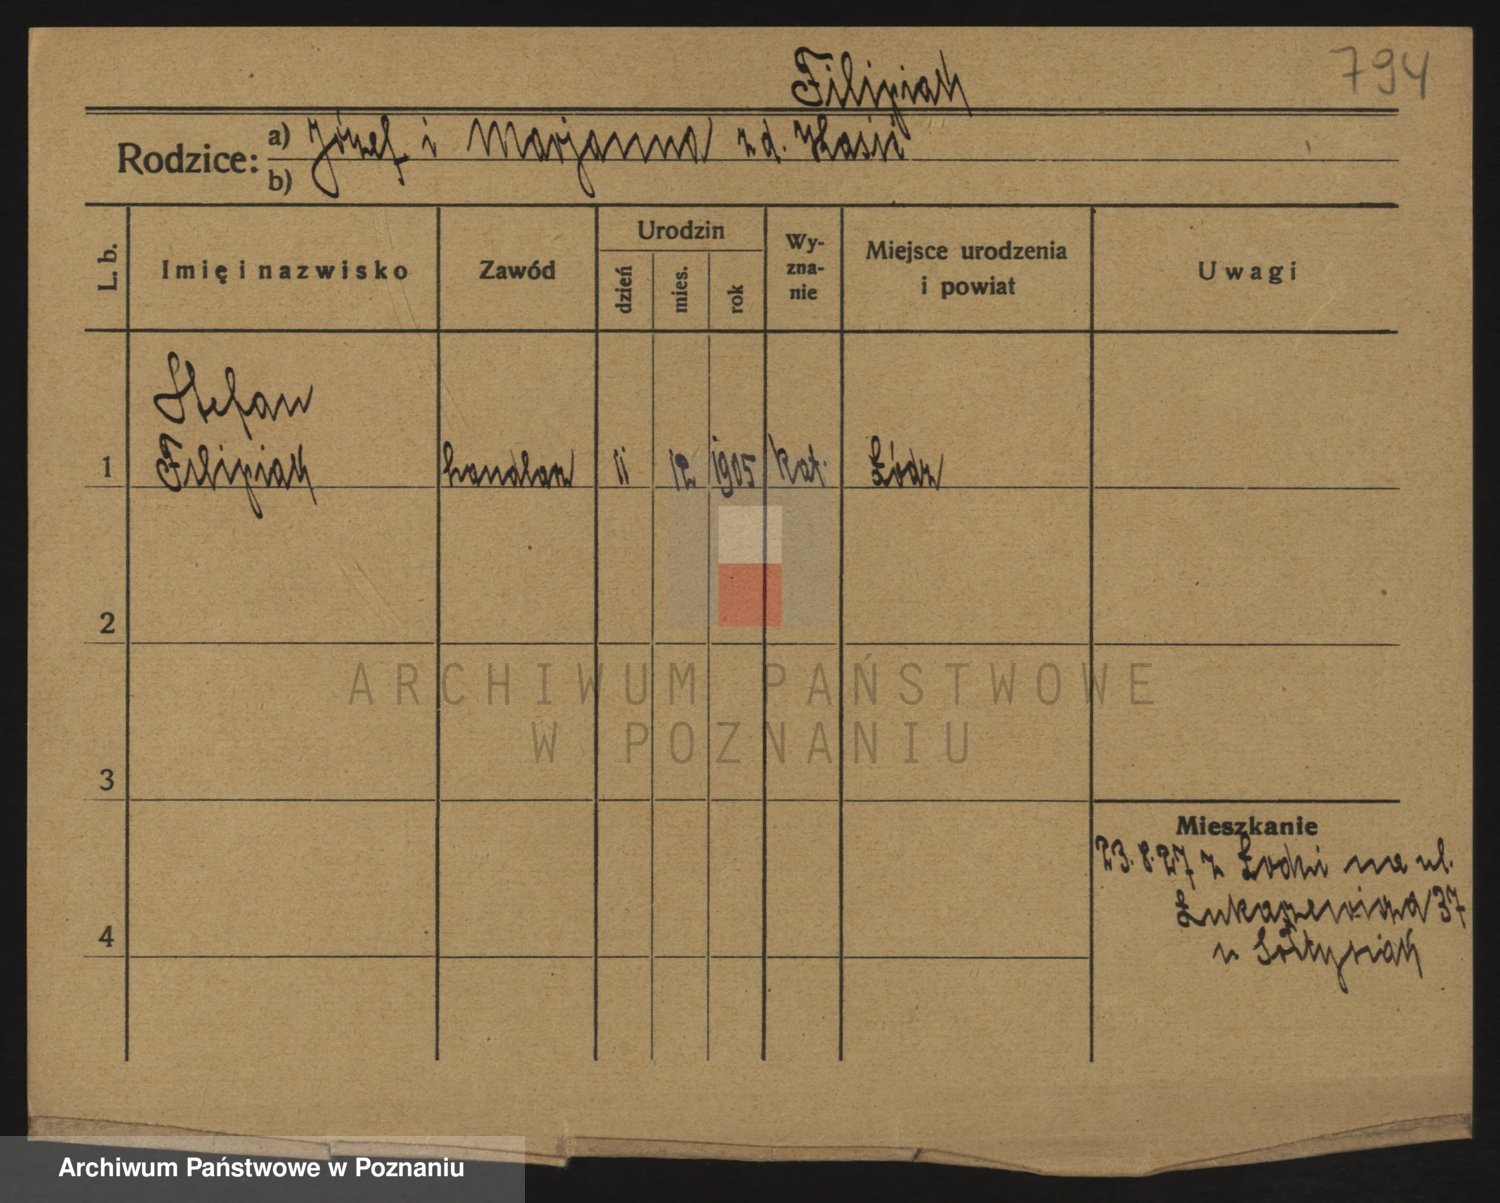 Filipiak
794
Rodzice: a) Józef i Marjanna zd.
b)
L. b.
Imię i nazwisko
Zawód
Urodzin
dzień
mies.
rok
Wy-
zna-
nie
Miejsce urodzenia
i powiat
Uwagi
Stefan
1 Filipiak handlarz 11 12 1905 kat. Łódz
2
3
4
Mieszkanie
23.8.27 z Łodzi na ul.
Łukaszewicza 37
u Sołtysiak
ARCHIWUM PAŃSTWOWE
W POZNANIU
Archiwum Państwowe w Poznaniu